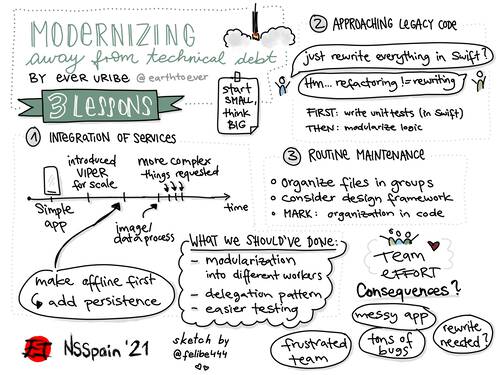 MODERNIZING
away from technical debt
BY EVER URIBE @earthtoever
3 LESSONS
start
SMALL,
think
BIG
1 INTEGRATION OF SERVICES
introduced
VIPER
for scale
more complex
things requested
simple
app
image/
data process
time
make offline first
add persistence
WHAT WE SHOULD'VE DONE:
- modularization
into different workers
- delegation pattern
- easier testing
2 APPROACHING LEGACY CODE
just rewrite everything in Swift?
Hm... refactoring != rewriting
FIRST: write unit tests (in Swift)
THEN: modularize logic
3 ROUTINE MAINTENANCE
Organize files in groups
Consider design framework
MARK: organization in code
Team
EFFORT
Consequences?
messy app
frustrated
team
tons of
bugs
rewrite
needed?
NSSpain '21
sketch by
@felibe444